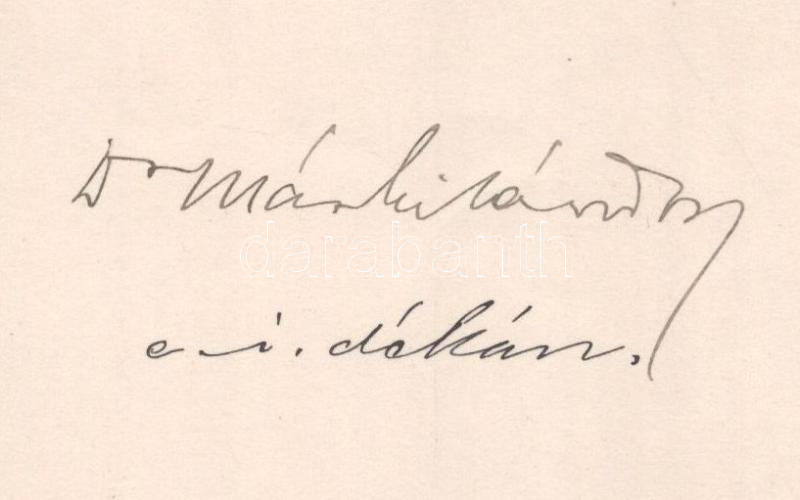 Dr Márki Sándor
darabanth
e. i. dékán.